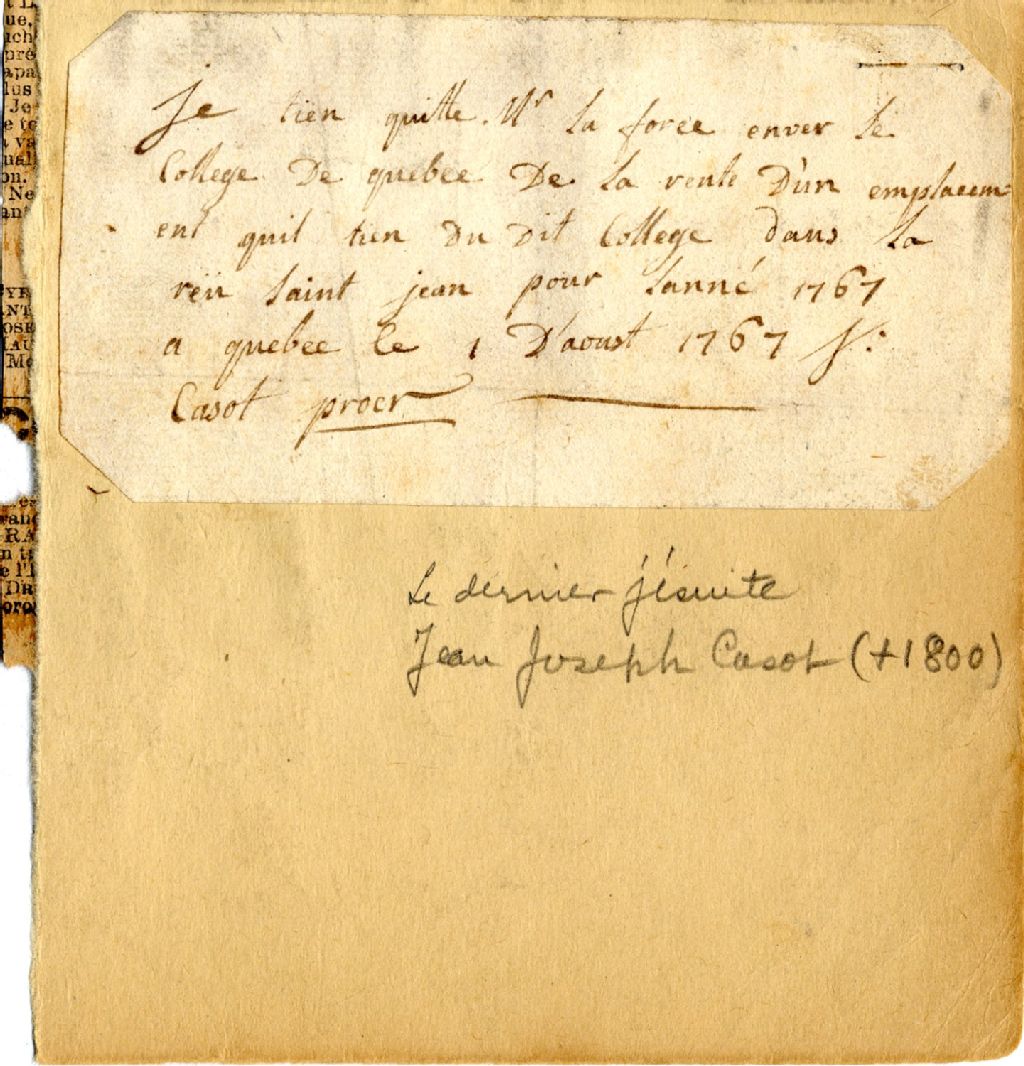 je tien quitte Mr la force enver le
College De quebec De la rente D'un emplacem
ent quil tien Du Dit College dans la
reü saint jean pour lanné 1767
a quebec le 1 D'aoust 1767 J:
Casot procr
Le dernier jésuite
Jean Joseph Casot (+1800)